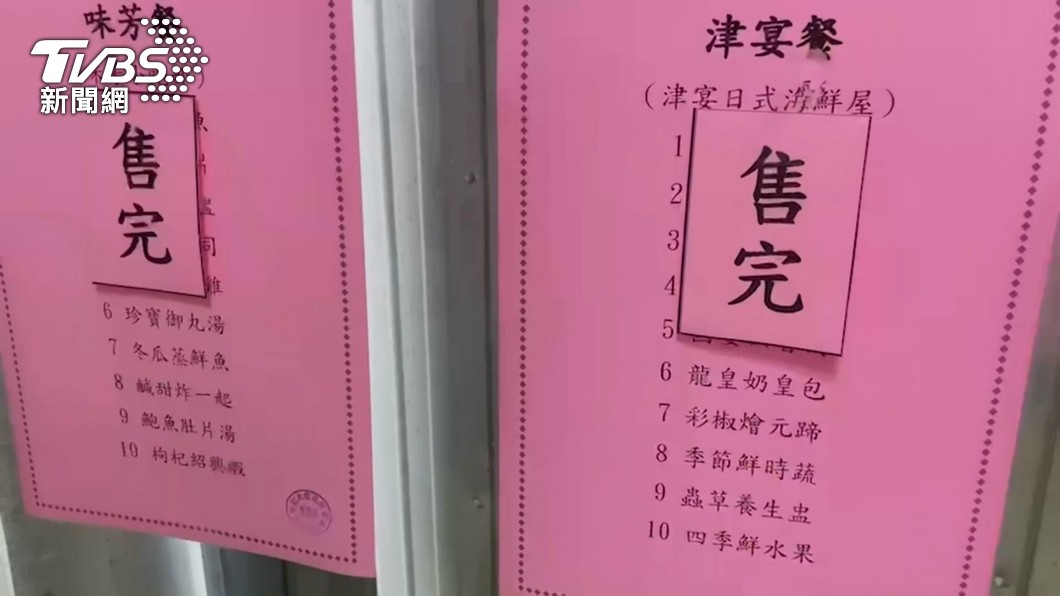 味芳餐
TVBS
新聞網
售
完
6 珍寶御丸湯
7 冬瓜蒸鮮魚
8 鹹甜炸一起
9 鮑魚肚片湯
10 枸杞紹興蝦
津宴餐
(津宴日式海鮮屋)
1
2
3
4
5
售
完
6 龍皇奶皇包
7 彩椒燴元蹄
8 季節鮮時蔬
9 蟲草養生盅
10 四季鮮水果